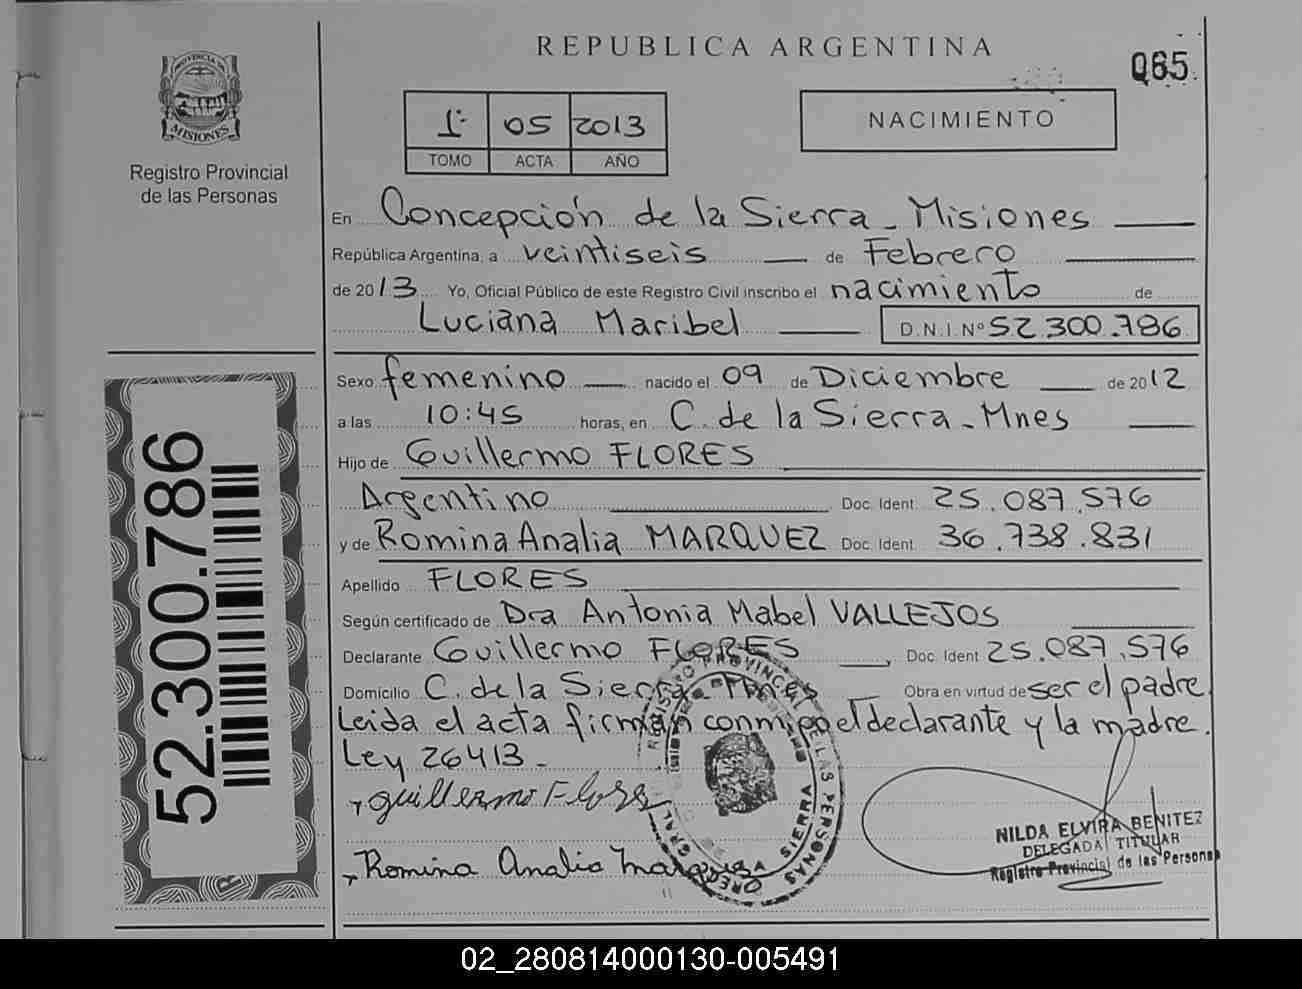 REPUBLICA ARGENTINA
065
PROVINCIA DE
MISIONES
Registro Provincial
de las Personas
1º 05 2013
TOMO ACTA AÑO
NACIMIENTO
En Concepción de la Sierra - Misiones
República Argentina, a veintiseis de Febrero
de 2013 Yo, Oficial Público de este Registro Civil inscribo el nacimiento de
Luciana Maribel D.N.I. Nº 52.300.786
Sexo femenino nacido el 09 de Diciembre de 2012
a las 10:45 horas, en C. de la Sierra - Mnes
Hijo de Guillermo FLORES
Argentino Doc. Ident. 25.087.576
y de Romina Analia MARQUEZ Doc. Ident. 36.738.831
Apellido FLORES
Según certificado de Dra Antonia Mabel VALLEJOS
Declarante Guillermo FLORES, Doc. Ident. 25.087.576
Domicilio C. de la Sierra - Mnes Obra en virtud de ser el padre
Leida el acta firman conmigo el declarante y la madre.
Ley 26413 -
Guillermo Flores
Romina Analia Marquez
REGISTRO PROVINCIAL DE LAS PERSONAS
SIERRA
NILDA ELVIRA BENITEZ
DELEGADA TITULAR
Registro Provincial de las Personas
52.300.786
02_280814000130-005491